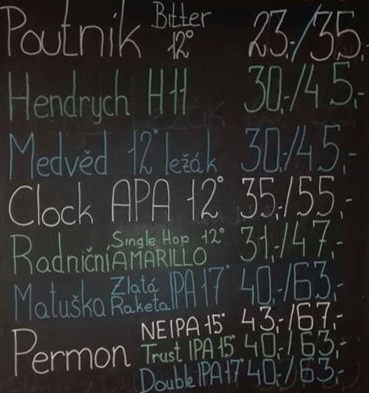 Poutník Bitter 12° 23,-/35,-
Hendrych H11 30,-/45,-
Medvěd 12° ležák 30,-/45,-
Clock APA 12° 35,-/55,-
Radniční Single Hop 12° AMARILLO 31,-/47,-
Matuška Zlatá Raketa IPA 17° 40,-/63,-
Permon NEIPA 15° 43,-/67,-
Trust IPA 15° 40,-/63,-
Double IPA 17° 40,-/63,-